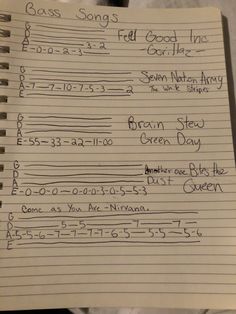 Bass Songs
G
D
A 3-2
E-0-0-2-3
Feel Good Inc
-Gorillaz-
G
D
A-7—7-10-7-5-3—2
E
Seven Nation Army
The White Stripes
G
D
A
E-55-33-22-11-00
Brain Stew
Green Day
G
D
A
E-0-0-0—0-0-0-3-0-5-5-3
Another one Bites the
Dust Queen
Come as You Are -Nirvana.
G
D 5—5 7 7
A-5-5-6-7-7-7-7-6-5-5-5-5-6
E